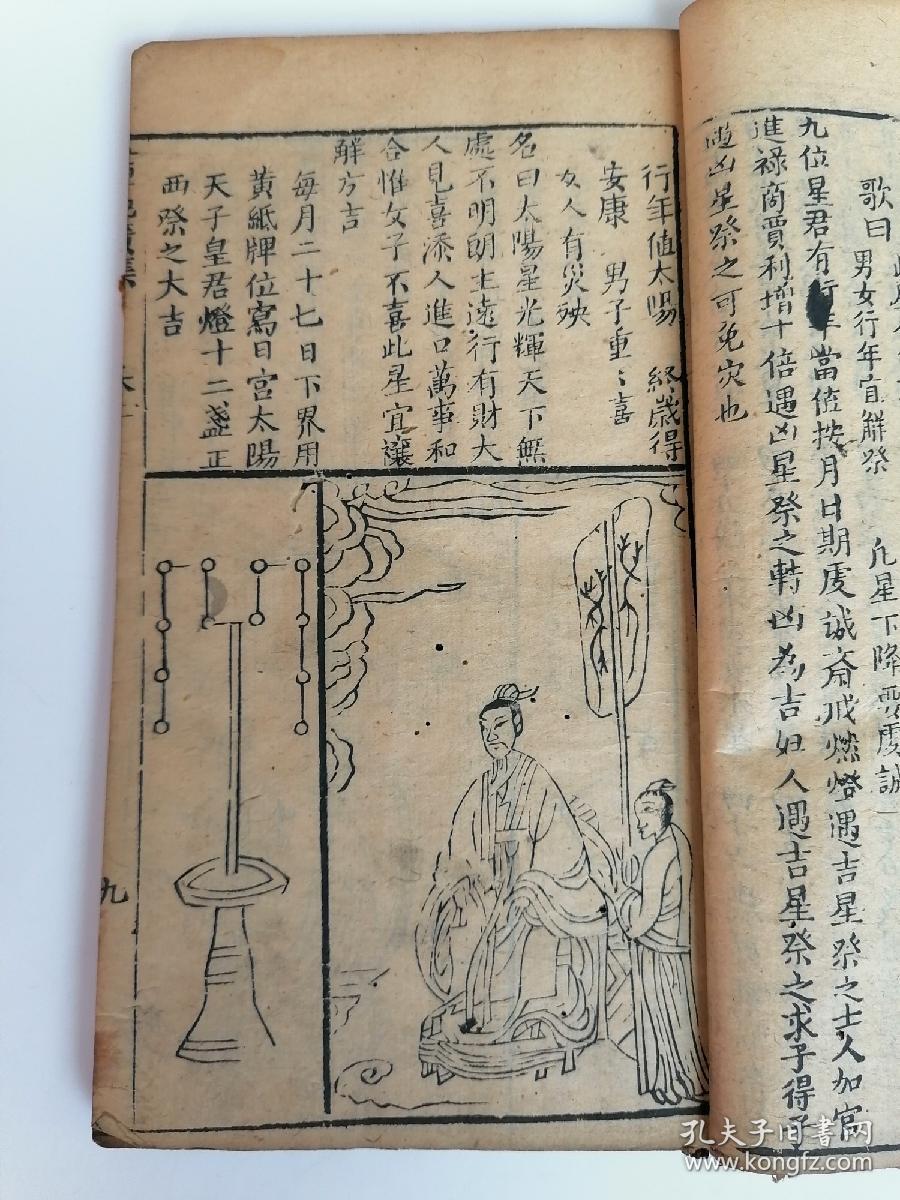 歌曰 男女行年宜解祭 凡星下降要虔誠
九位星君有行年當值按月日期虔誠斎戒燃燈遇吉星祭之士人加官
進祿商賈利增十倍遇凶星祭之轉凶為吉妇人遇吉星祭之求子得子
遇凶星祭之可免灾也
行年值太陽 終歲得
安康 男子重〻喜
女人有災殃
名曰太陽星光輝天下無
處不明朗主遠行有財大
人見喜添人進口萬事和
合惟女子不喜此星宜禳
觧方吉
每月二十七日下界用
黃紙牌位寫日宮太陽
天子皇君燈十二盞正
西祭之大吉
九
孔夫子旧书网
www.kongfz.com